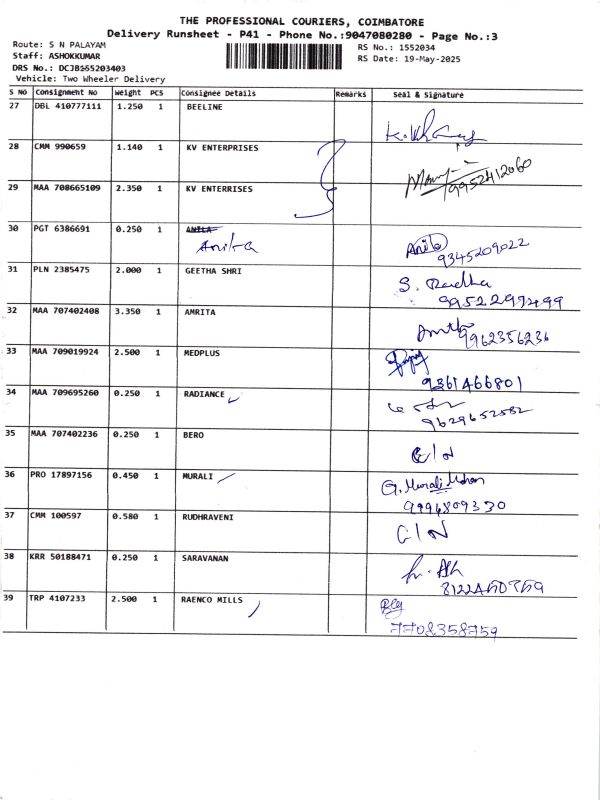 THE PROFESSIONAL COURIERS, COIMBATORE
Delivery Runsheet - P41 - Phone No.:9047080280 - Page No.:3
Route: S N PALAYAM
Staff: ASHOKKUMAR
RS No.: 1552034
DRS No.: DCJB155203403
RS Date: 19-May-2025
Vehicle: Two Wheeler Delivery
S NO Consignment No Weight PCS Consignee Details Remarks Seal & Signature
27 DBL 410777111 1.250 1 BEELINE
28 CMM 990659 1.140 1 KV ENTERPRISES
9952412060
29 MAA 708665109 2.350 1 KV ENTERRISES
30 PGT 6386691 0.250 1 ANILA
Anitra Anila
9345209022
31 PLN 2385475 2.000 1 GEETHA SHRI
S. Radha
9952299499
32 MAA 707402408 3.350 1 AMRITA
9962356236
33 MAA 709019924 2.500 1 MEDPLUS
9361466801
34 MAA 709695260 0.250 1 RADIANCE
9629652582
35 MAA 707402236 0.250 1 BERO
C/N
36 PRO 17897156 0.450 1 MURALI
G. Murali Mohan
9994809330
37 CMM 100597 0.580 1 RUDHRAVENI
C/N
38 KRR 50188471 0.250 1 SARAVANAN
39 TRP 4107233 2.500 1 RAENCO MILLS
7708358759